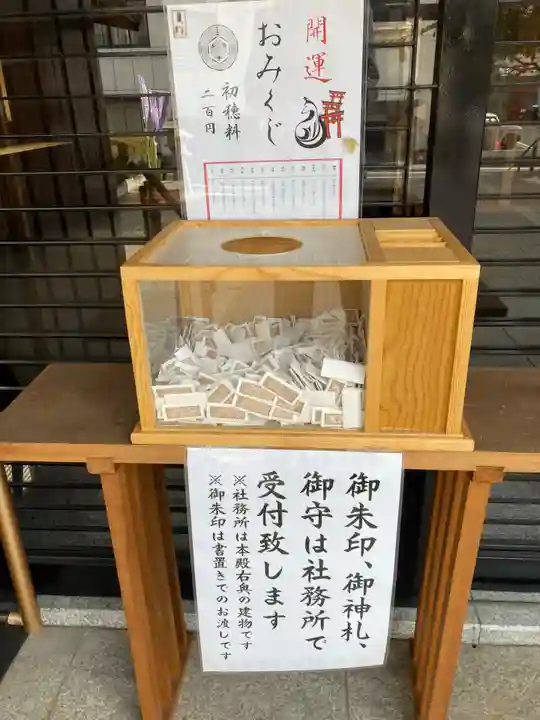 開運
おみくじ
初穂料
二百円
御朱印、御神札、
御守は社務所で
受付致します
※社務所は本殿右奥の建物です
※御朱印は書置きでのお渡しです